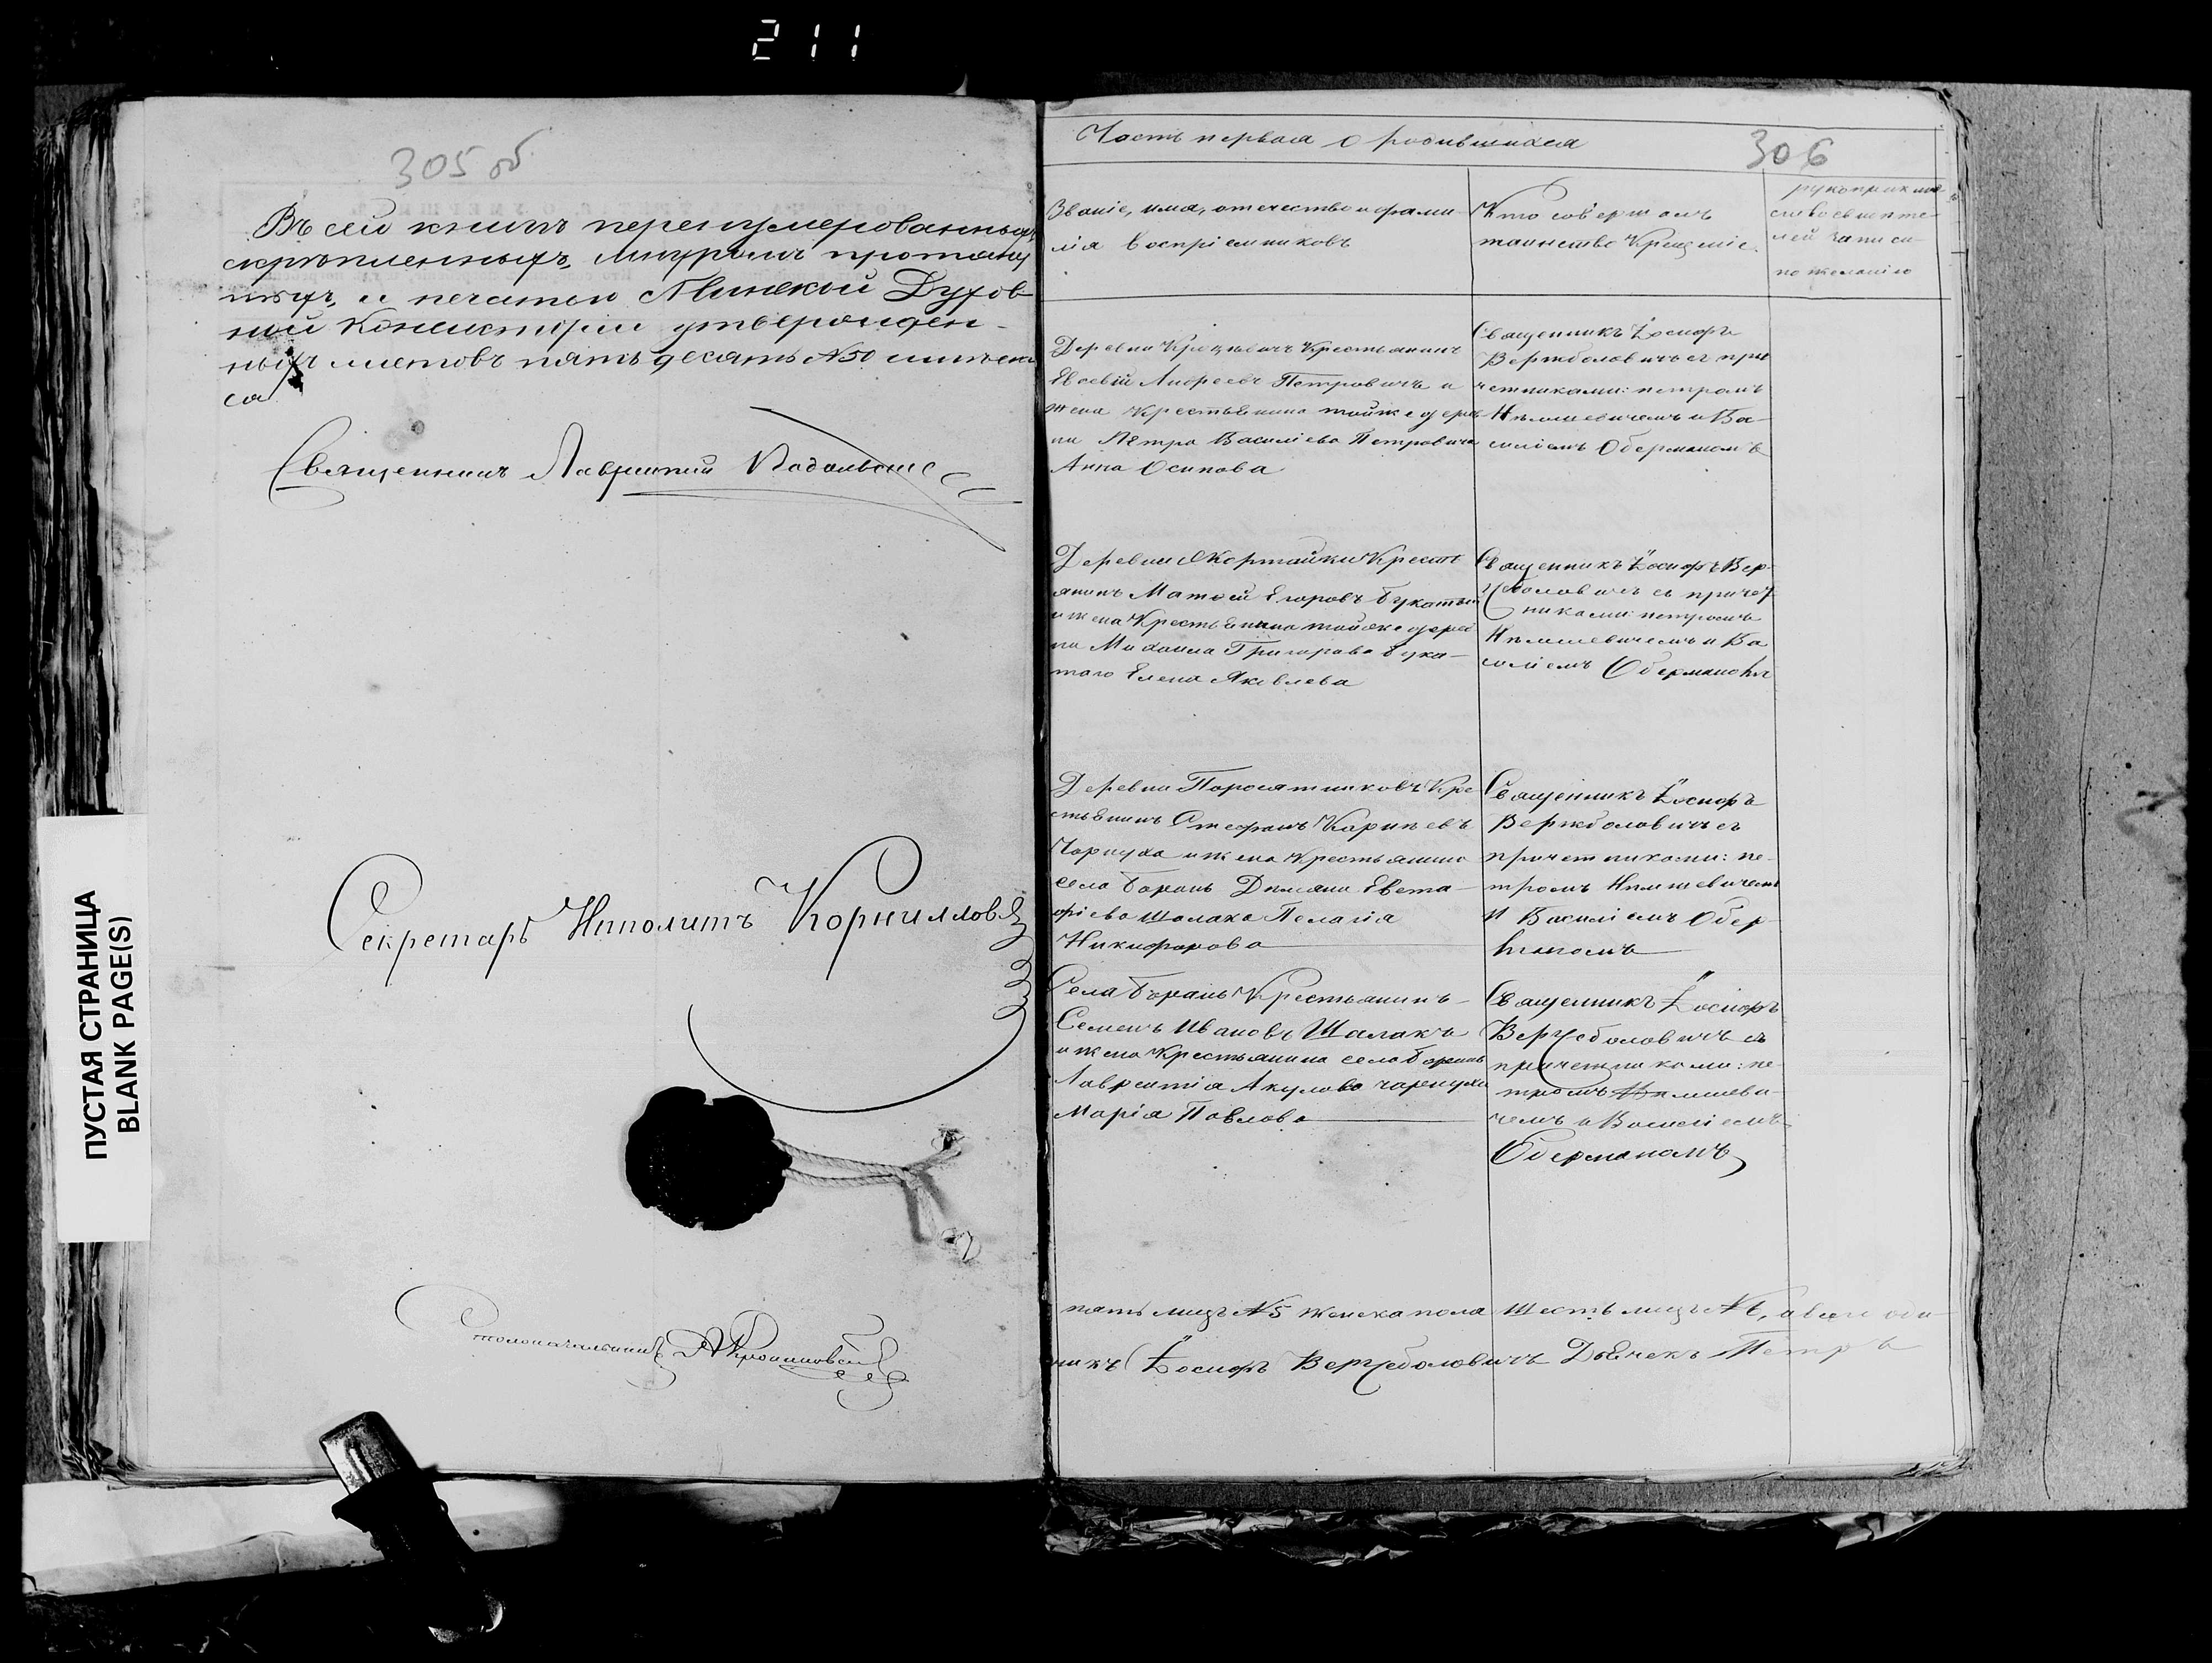 211
305 об
Въ сей книгѣ перенумерованныхъ
скрѣпленныхъ, шнуромъ протяну
тыхъ, и печатью Минской Духов
ной Консисторіи утвержден-
ныхъ листовъ пятьдесятъ №50 имѣет
ся
Священникъ Лаврентій
Секретарь Ипполитъ Корнилловъ
Столоначальникъ
ПУСТАЯ СТРАНИЦА
BLANK PAGE(S)
Часть первая о родившихся
306
Званіе, имя, отечество и фами-
лія воспріемниковъ
Кто совершалъ
таинство Крещеніе.
рукоприклад
ство свидѣте-
лей записи
по желанію
Деревни Крестьянинъ
Евсевій Андреевъ Петровичъ и
жена Крестьянина тойже дерев
ни Петра Василіева Петровича
Анна Осипова
Священникъ Іосифъ
Вержболовичъ съ при
четниками: петромъ
Нѣмшевичемъ и Ва-
силіемъ Оберманомъ
Деревни Крестъ
янинъ Матѳей Егоровъ Букатый
и жена Крестьянина тойже дерев
ни Михаила Григорова Бука-
таго Елена Яковлева
Священникъ Іосифъ Вер-
жболовичъ съ причет
никами: петромъ
Нѣмшевичемъ и Ва
силіемъ Оберманомъ
Деревни Поросятниковъ Кре
стьянинъ Стефанъ Карпѣевъ
Чорнуха и жена Крестьянина
села Барань Дамяна Евста-
фіева Шалака Пелагія
Никифорова
Священникъ Іосифъ
Вержболовичъ съ
причетниками: пе-
тромъ Нѣмшевичемъ
и Василіемъ Обер-
маномъ
Села Барань Крестьянинъ
Семенъ Ивановъ Шалакъ
и жена Крестьянина села Барань
Лаврентія Акулова Чарнухи
Марія Павлова
Священникъ Іосифъ
Вержболовичъ съ
причетниками: пе-
тромъ Нѣмшеви-
чемъ и Василіемъ
Оберманомъ
пять лицъ №5 женска пола шесть лицъ №6, а всего
никъ Іосифъ Вержболовичъ Дьячекъ Петръ